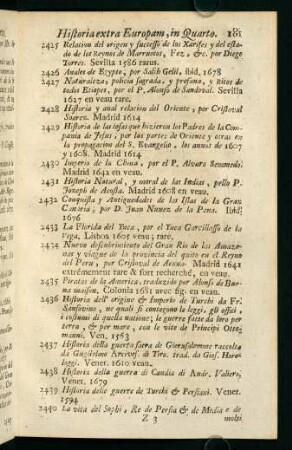 Historia extra Europam, in Quarto. 181
2425 Relation del origen y successo de los Xarifes y del estado
de los Reynos de Marruecos, Fez, &c. por Diego
Torres. Sevilla 1586 rarus.
2426 Anales de Egypto, por Salih Gelil, ibid, 1678
2427 Naturaleza, policia sagrada, y profana, y ritos de
todos Etiopes, por el P. Alonso de Sandoval. Sevilla
1627 en veau rare.
2428 Historia y anal relacion del Oriente, por Cristoval
Suares. Madrid 1614
2429 Historia de las cosas que hizieron los Padres de la Compania
de Jesus, por las partes de Oriente y otras en
la propagacion del S. Evangelio, los annis de 1607
y 1608. Madrid 1614
2430 Imperio de la China, por el P. Alvaro Semmedo.
Madrid 1642 en veau.
2431 Historia Natural, y moral de las Indias, pello P.
Joseph de Acosta. Madrid 1608 en veau.
2432 Conquista y Antiguedades de las Islas de la Gran
Canaria, por D. Juan Nunez de la Pena. Ibid.
1676
2433 La Florida del Ynca, por el Ynca Garcillasso de la
Vega, Lisboa 1605 veau; rare.
2434 Nuevo descubrimiento del Gran Rio de las Amazonas
y viagne de la provincia del quito en el Reyno
del Peru, por Cristoval de Acuna. Madrid 1641
extrêmement rare & fort recherché, en veau.
2435 Piratas de la America, traduzido por Alonso de Buena
maison, Colonia 1681 avec fig. en veau.
2436 Historia dell' origine & Imperio de Turchi da Fr.
Sansovino, ne quali si conteguno le leggi, gli officii,
i costumi di quella natione; le guerre fatte da loro per
terra, & per mare, con le vite de Principi Ottomanni.
Ven. 1563
2437 Historia della guerra sacra de Gierusalemme raccolta
da Guglielmo Arcivesc. di Tiro, trad. da Gius. Horologgi.
Venet. 1610 veau.
2438 Historia della guerra di Candia di Andr. Valiero,
Venet. 1679
2439 Historia delle guerre de Turchi & Persiani. Venet.
1594
2440 La vita del Sophi, Re de Persia & de Media e de
Z 3 molti